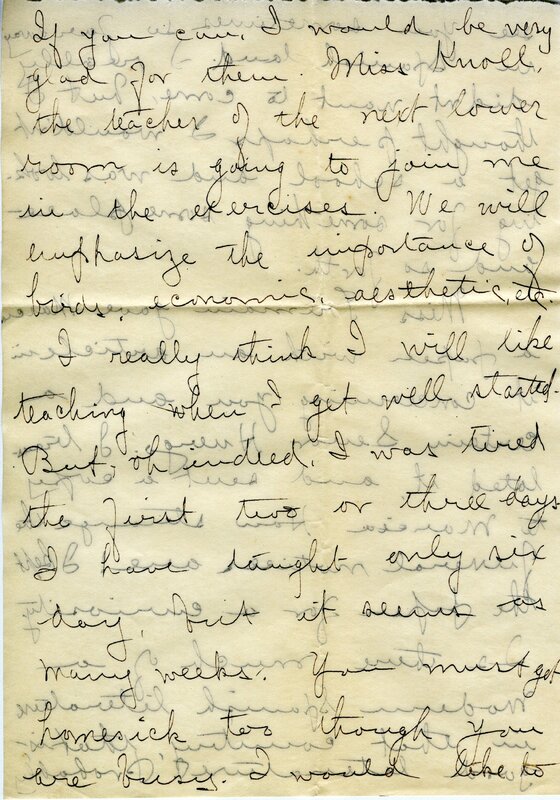 If you can, I would be very
glad for them. Miss Knoll,
the teacher of the next lower
room is going to join me
in the exercises. We will
emphasize the importance of
birds, economic, aesthetic, etc.
I really think I will like
teaching when I get well started.
But, oh indeed, I was tired
the first two or three days
I have taught only six
day, but it seems as
many weeks. You must get
homesick too though you
are busy. I would like to